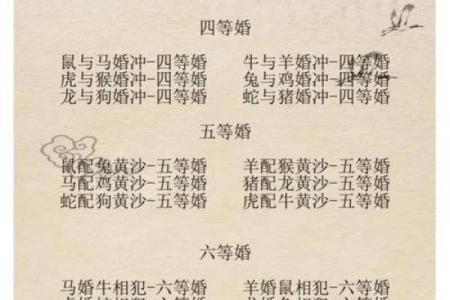 四等婚
鼠与马婚冲-四等婚 牛与羊婚冲-四等婚
虎与猴婚冲-四等婚 兔与鸡婚冲-四等婚
龙与狗婚冲-四等婚 蛇与猪婚冲-四等婚
五等婚
鼠配兔黄沙-五等婚 羊配猴黄沙-五等婚
马配鸡黄沙-五等婚 猪配龙黄沙-五等婚
蛇配狗黄沙-五等婚 虎配牛黄沙-五等婚
六等婚
马婚牛相犯-六等婚 羊婚鼠相犯-六等婚